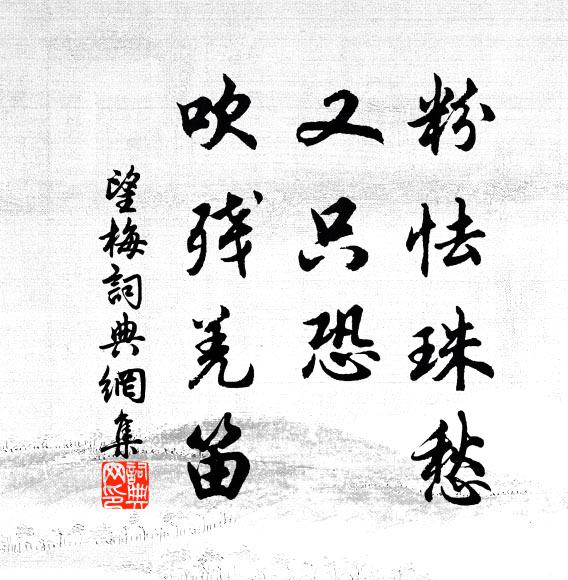 粉怯珠愁
又只恐
吹残羌笛
望梅詞典網集
詞典
网印